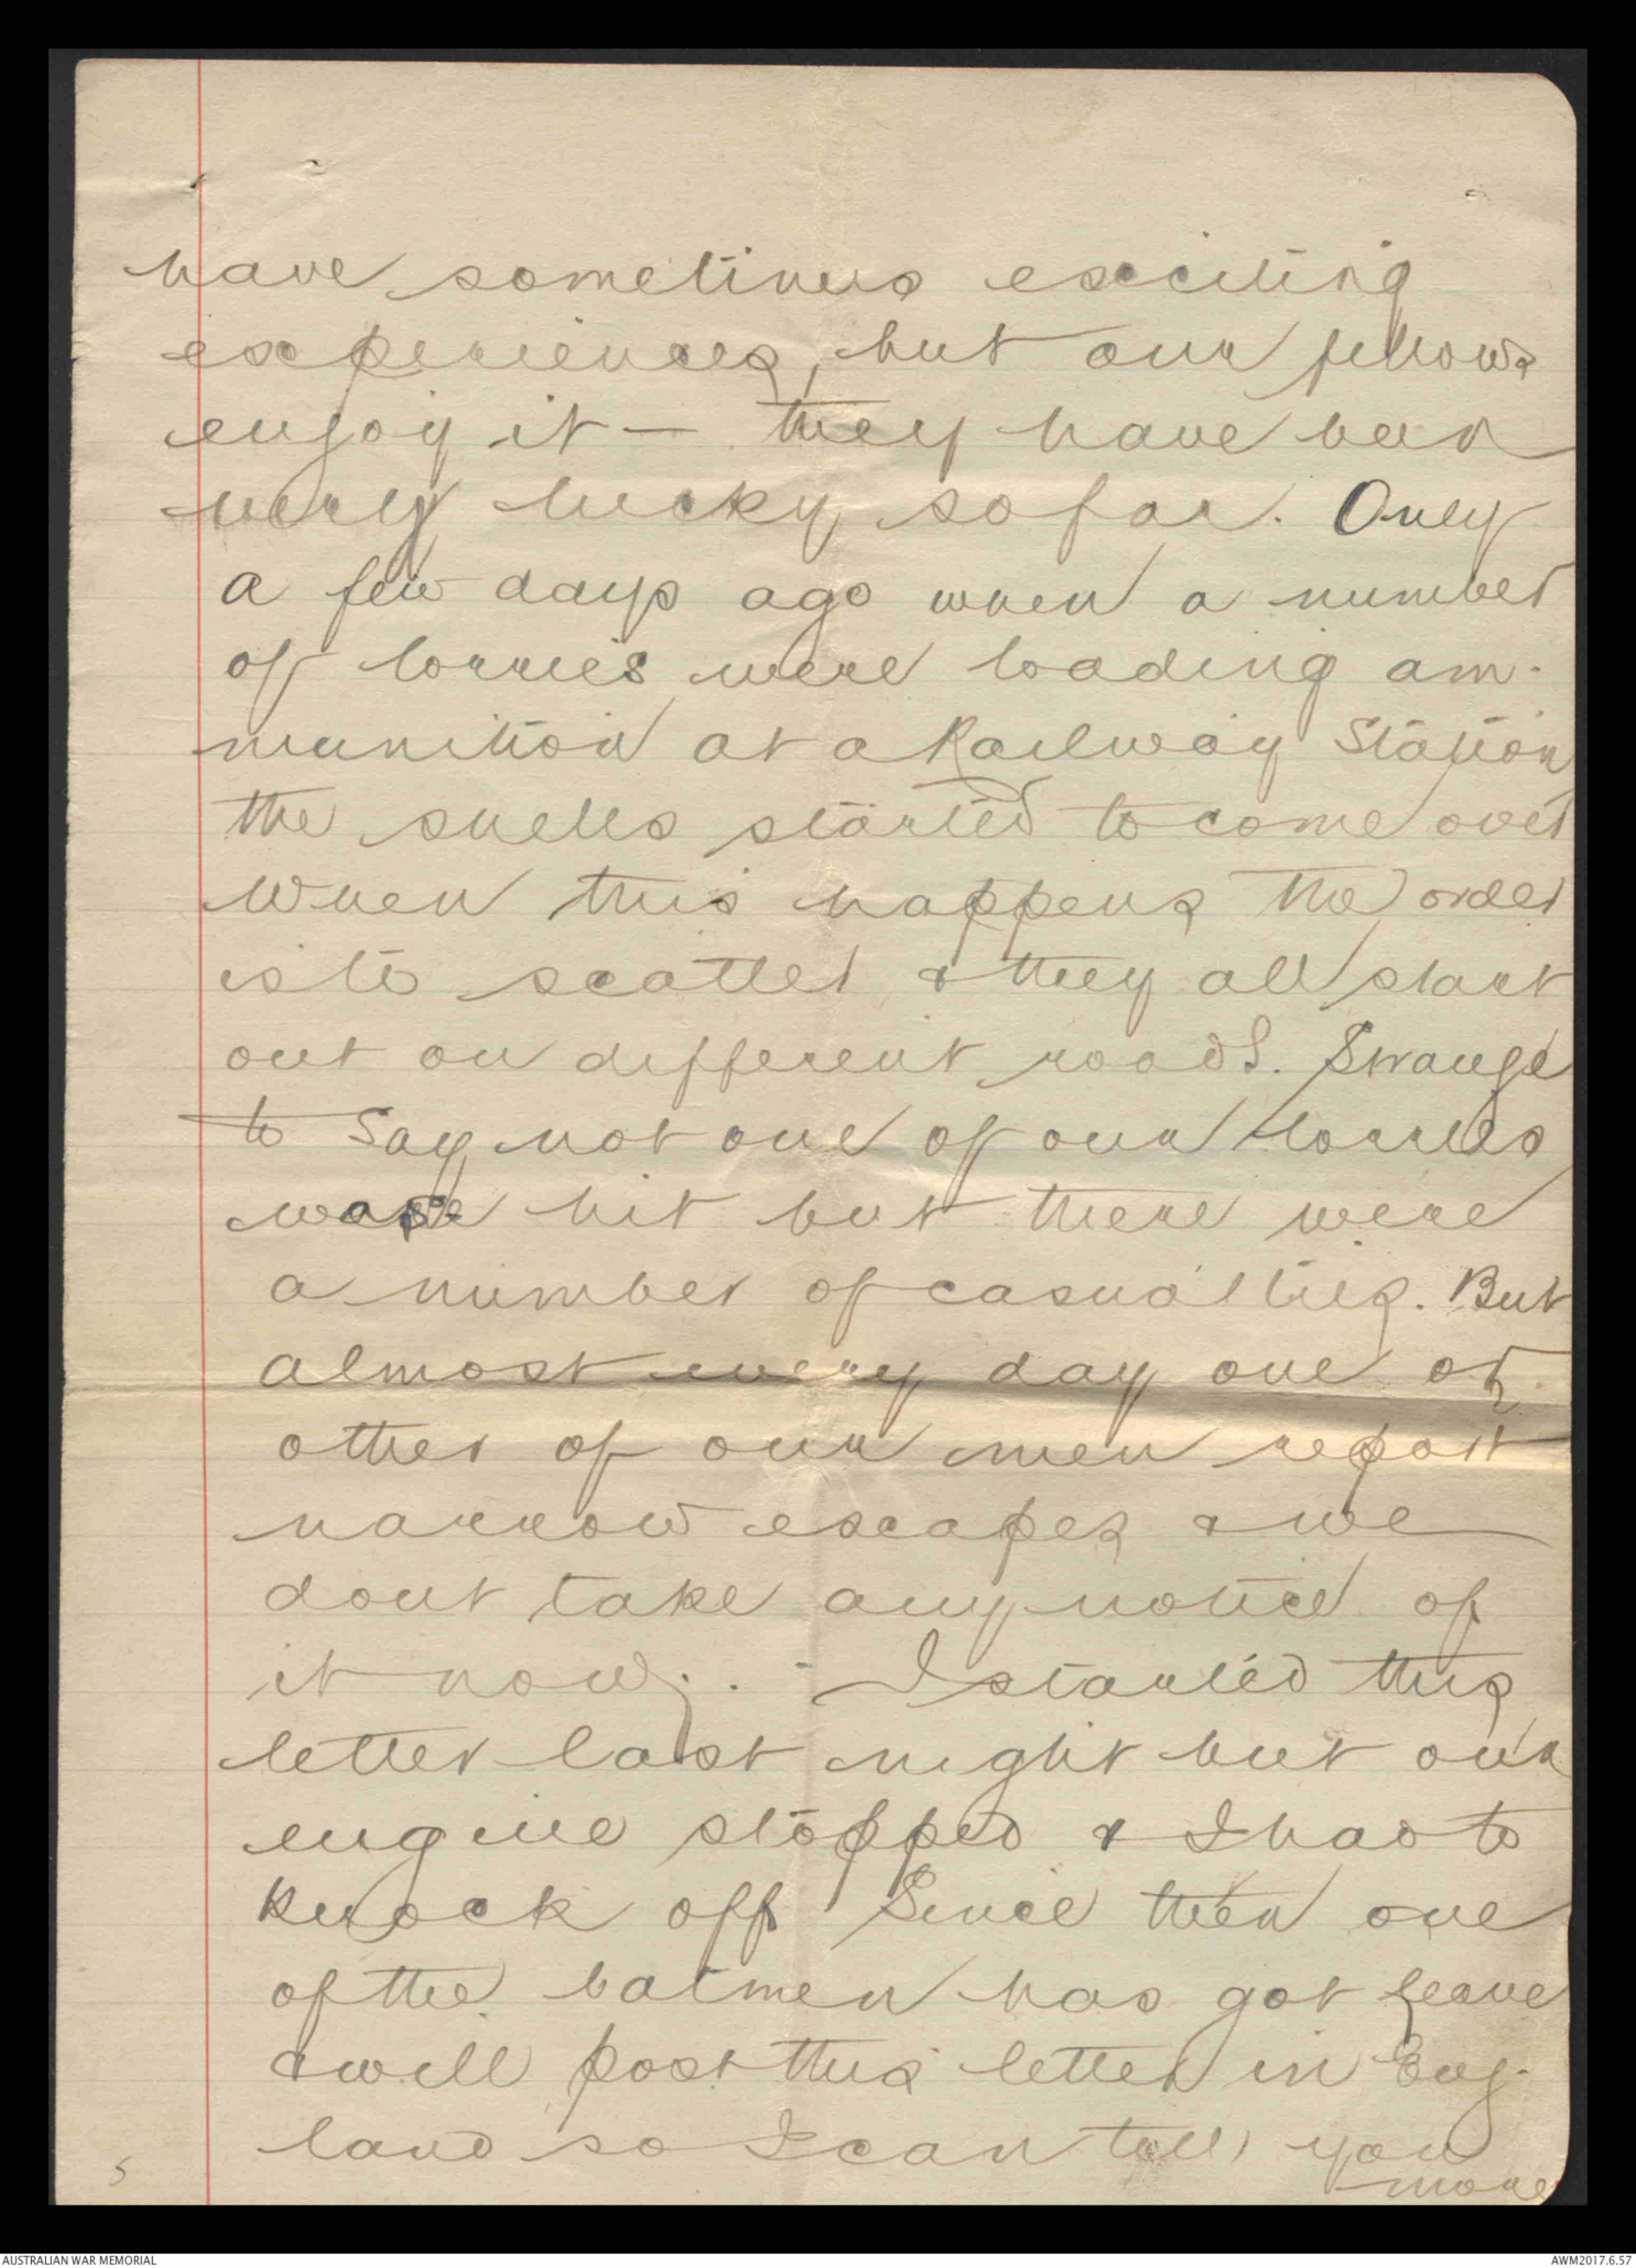 have sometimes exciting
experiences, but our fellows
enjoy it — they have been
very lucky so far. Only
a few days ago when a number
of lorries were loading am-
munition at a Railway Station
the shells started to come over
When this happens the order
is to scatter & they all start
out on different roads. Strange
to say not one of our lorries
was hit but there were
a number of casualties. But
almost every day one or
other of our men report
narrow escapes & we
dont take any notice of
it now. - I started this
letter last night but our
engine stopped & I had to
knock off Since then one
of the batmen has got leave
& will post this letter in Eng-
land so I can tell you
more
5
AUSTRALIAN WAR MEMORIAL
AWM2017.6.57